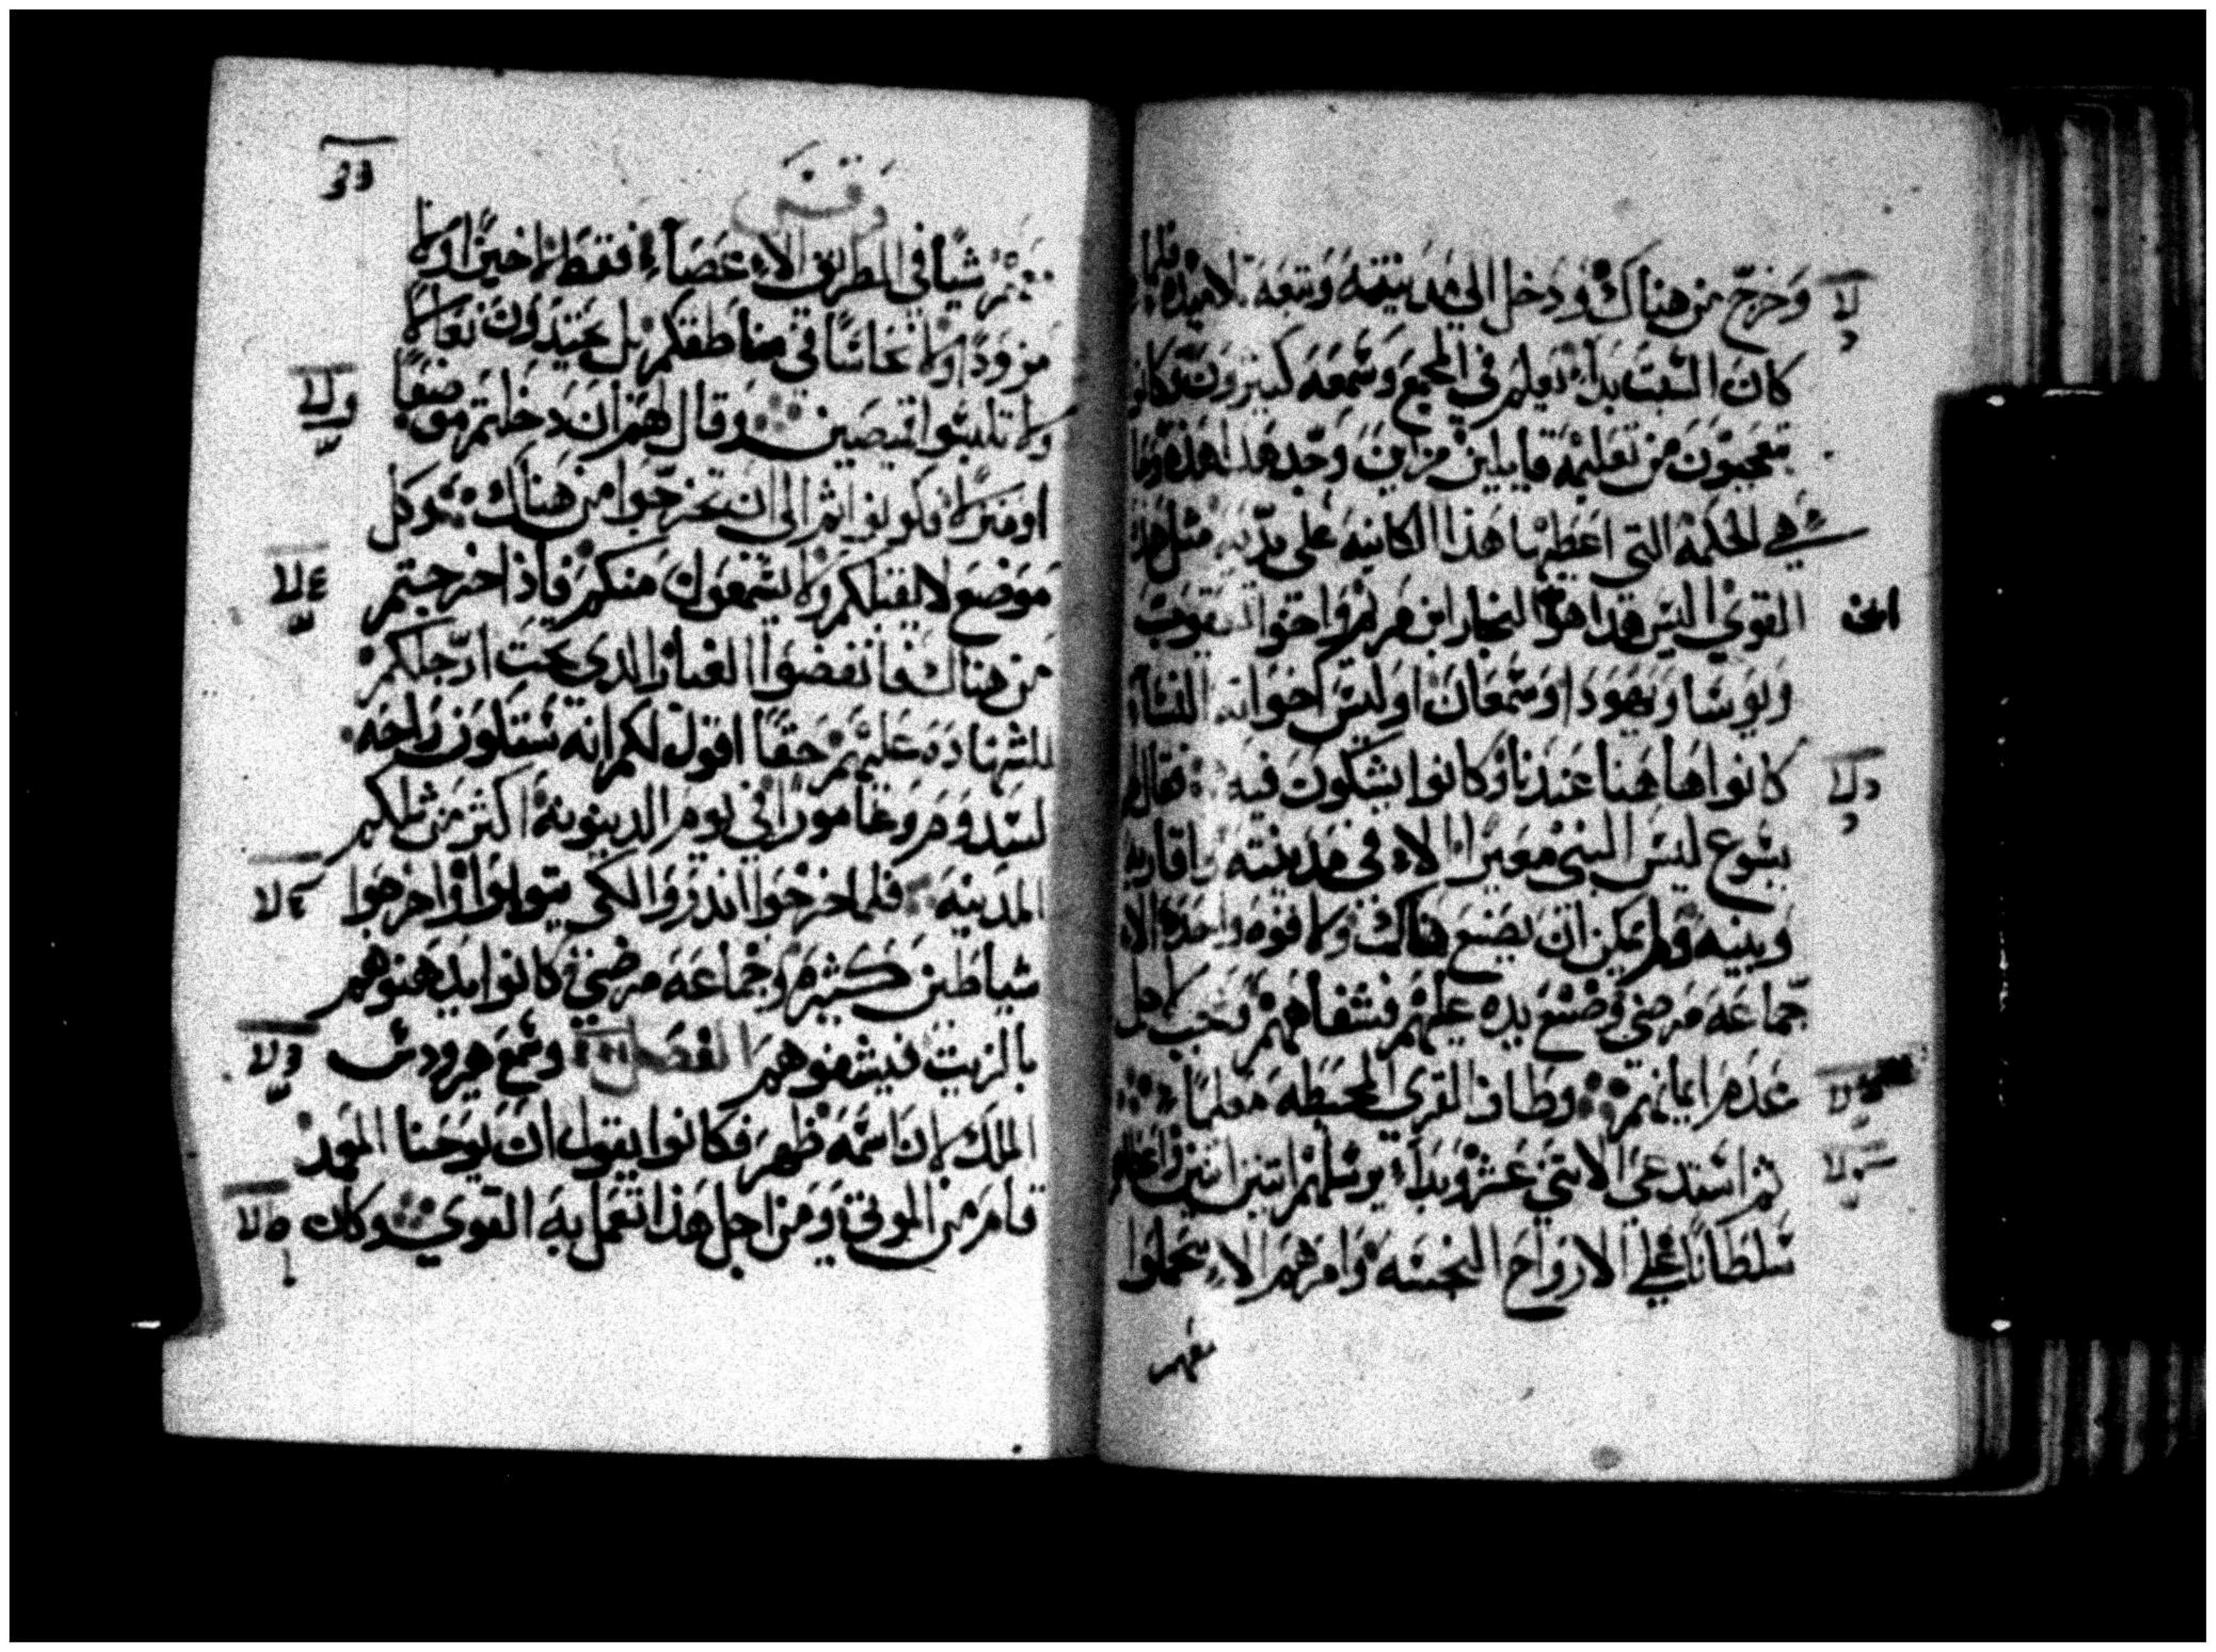 وَخرَجَ من هناك وَدَخل الي مدينته وَتبعَه تلاميذه فلما
كانَ السَّبت بَدأ يعلم في المجمع وَسَمعَه كثيرون وَكانوا
يتعجبّونَ من تعليمه قايلين من اين وَجَد هذا هذه وَما
هي الحكمة التي اعطيها هذا الكاينه علي يدَيه مثل هذه
القوي اليسَ هذا هوَ النجار ابن مريم واخوا ليعقوب
وَيوسَا وَيهودا وَسمعَان اوَليسَ اخواته النسَاء
كانوا هَا هنا عندَنا وَكانوا يشكونَ فيه فقال لهم
يسُوع ليسَ النبي معيَرا الاء في مدينته واقاربه
وَبيته وَلم يمكن انَ يصنع هناك ولا قوة واحدة الا
جماعَة مرضي وَضع يده عليهم فشفاهم تعجب لاجل
عَدَم ايمانهم وَطاف القري المحيطه معلما
ثم استدعي الاثني عشر وَبدأ يرسلهم اثنين اثنين وَاعطاهم
سُلطَانًا علي الارواح النجسَه وَامرَهم الاء يحملوا
معهم
معهم شيًا في الطريق الاء عَصَاء فقط لا خبزًا ولا
مزودًا ولا نحاسًا في مناطقكم بل يحتذون نعالا
ولا تلبسُوا قميصَين وقال لهم ان دخلتم موضعًا
او منزلا فكونوا ثم الي ان تخرجّوا من هناك وَكل
مَوضع لا يقبلكم ولا يسَمعون منكم فاذا خرجتم
من هناك فانفضوا الغبار الدي تحت ارجلكم
للشهادَة عَليهم حقًا اقول لكم انه سَتكون رَاحَه
لسَدوم وَغامورا في يوم الدينونة اكثر من تلك
المدينه فلما خرجوا اندروا لكي يتوبوا وَاخرجوا
شياطين كثيرة وَجماعَة مرضي كانوا يدهنوهم
بالزيت فيشفوهم الفصل وَسَمع هيرودسَ
الملك لان اسَمه ظهر فكانوا يقول ان يوحَنا المعمد
قام من الموتي وَمن اجل هذا تعمل به القوي وكان